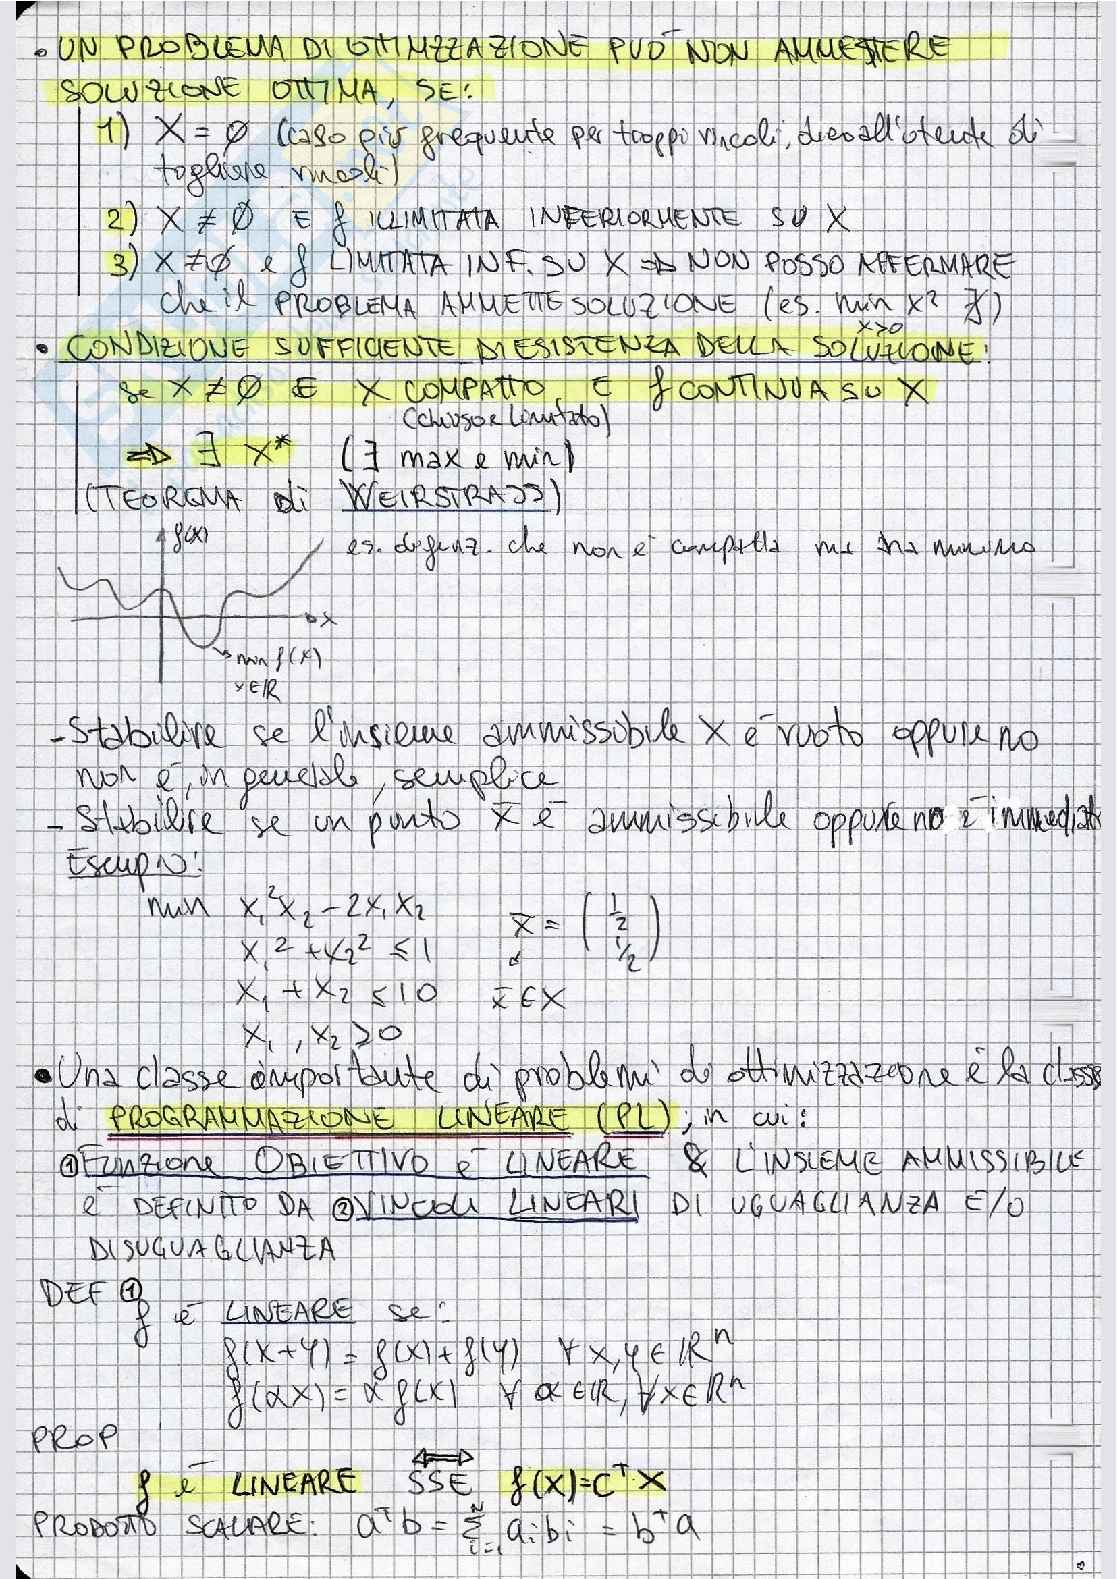 • UN PROBLEMA DI OTTIMIZZAZIONE PUÒ NON AMMETTERE
SOLUZIONE OTTIMA, SE:
1) X = ∅ (caso più frequente per troppi vincoli, dico all'utente di
togliere vincoli)
2) X ≠ ∅ E f ILLIMITATA INFERIORMENTE SU X
3) X ≠ ∅ e f LIMITATA INF. SU X ⇒ NON POSSO AFFERMARE
che il PROBLEMA AMMETTE SOLUZIONE (es. min x² ∄)
x>0
• CONDIZIONE SUFFICIENTE DI ESISTENZA DELLA SOLUZIONE:
se X ≠ ∅ E X COMPATTO E f CONTINUA SU X
(chiuso e limitato)
⇒ ∃ X* (∃ max e min)
(TEOREMA di WEIRSTRASS)
f(x)
es. di funz. che non è compatta ma ha minimo
x
min f(x)
x∈ℝ
- Stabilire se l'insieme ammissibile X è vuoto oppure no
non è, in generale, semplice
- Stabilire se un punto x̄ è ammissibile oppure no è immediato
Esempio:
min x₁²x₂ - 2x₁x₂
x̄ = (1/2 1/2)
x₁² + x₂² ≤ 1
x₁ + x₂ ≤ 10 x̄ ∈ X
x₁, x₂ ≥ 0
• Una classe importante di problemi di ottimizzazione è la classe
di PROGRAMMAZIONE LINEARE (PL), in cui:
① Funzione OBIETTIVO è LINEARE & L'INSIEME AMMISSIBILE
è DEFINITO DA ② VINCOLI LINEARI DI UGUAGLIANZA E/O
DISUGUAGLIANZA
DEF ①
f è LINEARE se:
f(x+y) = f(x) + f(y) ∀ x,y ∈ ℝⁿ
f(αx) = α f(x) ∀ α∈ℝ, ∀x∈ℝⁿ
PROP
⇔
f è LINEARE SSE f(x)=Cᵀ·X
PRODOTTO SCALARE: aᵀb = Σⁿᵢ₌₁ aᵢbᵢ = bᵀa